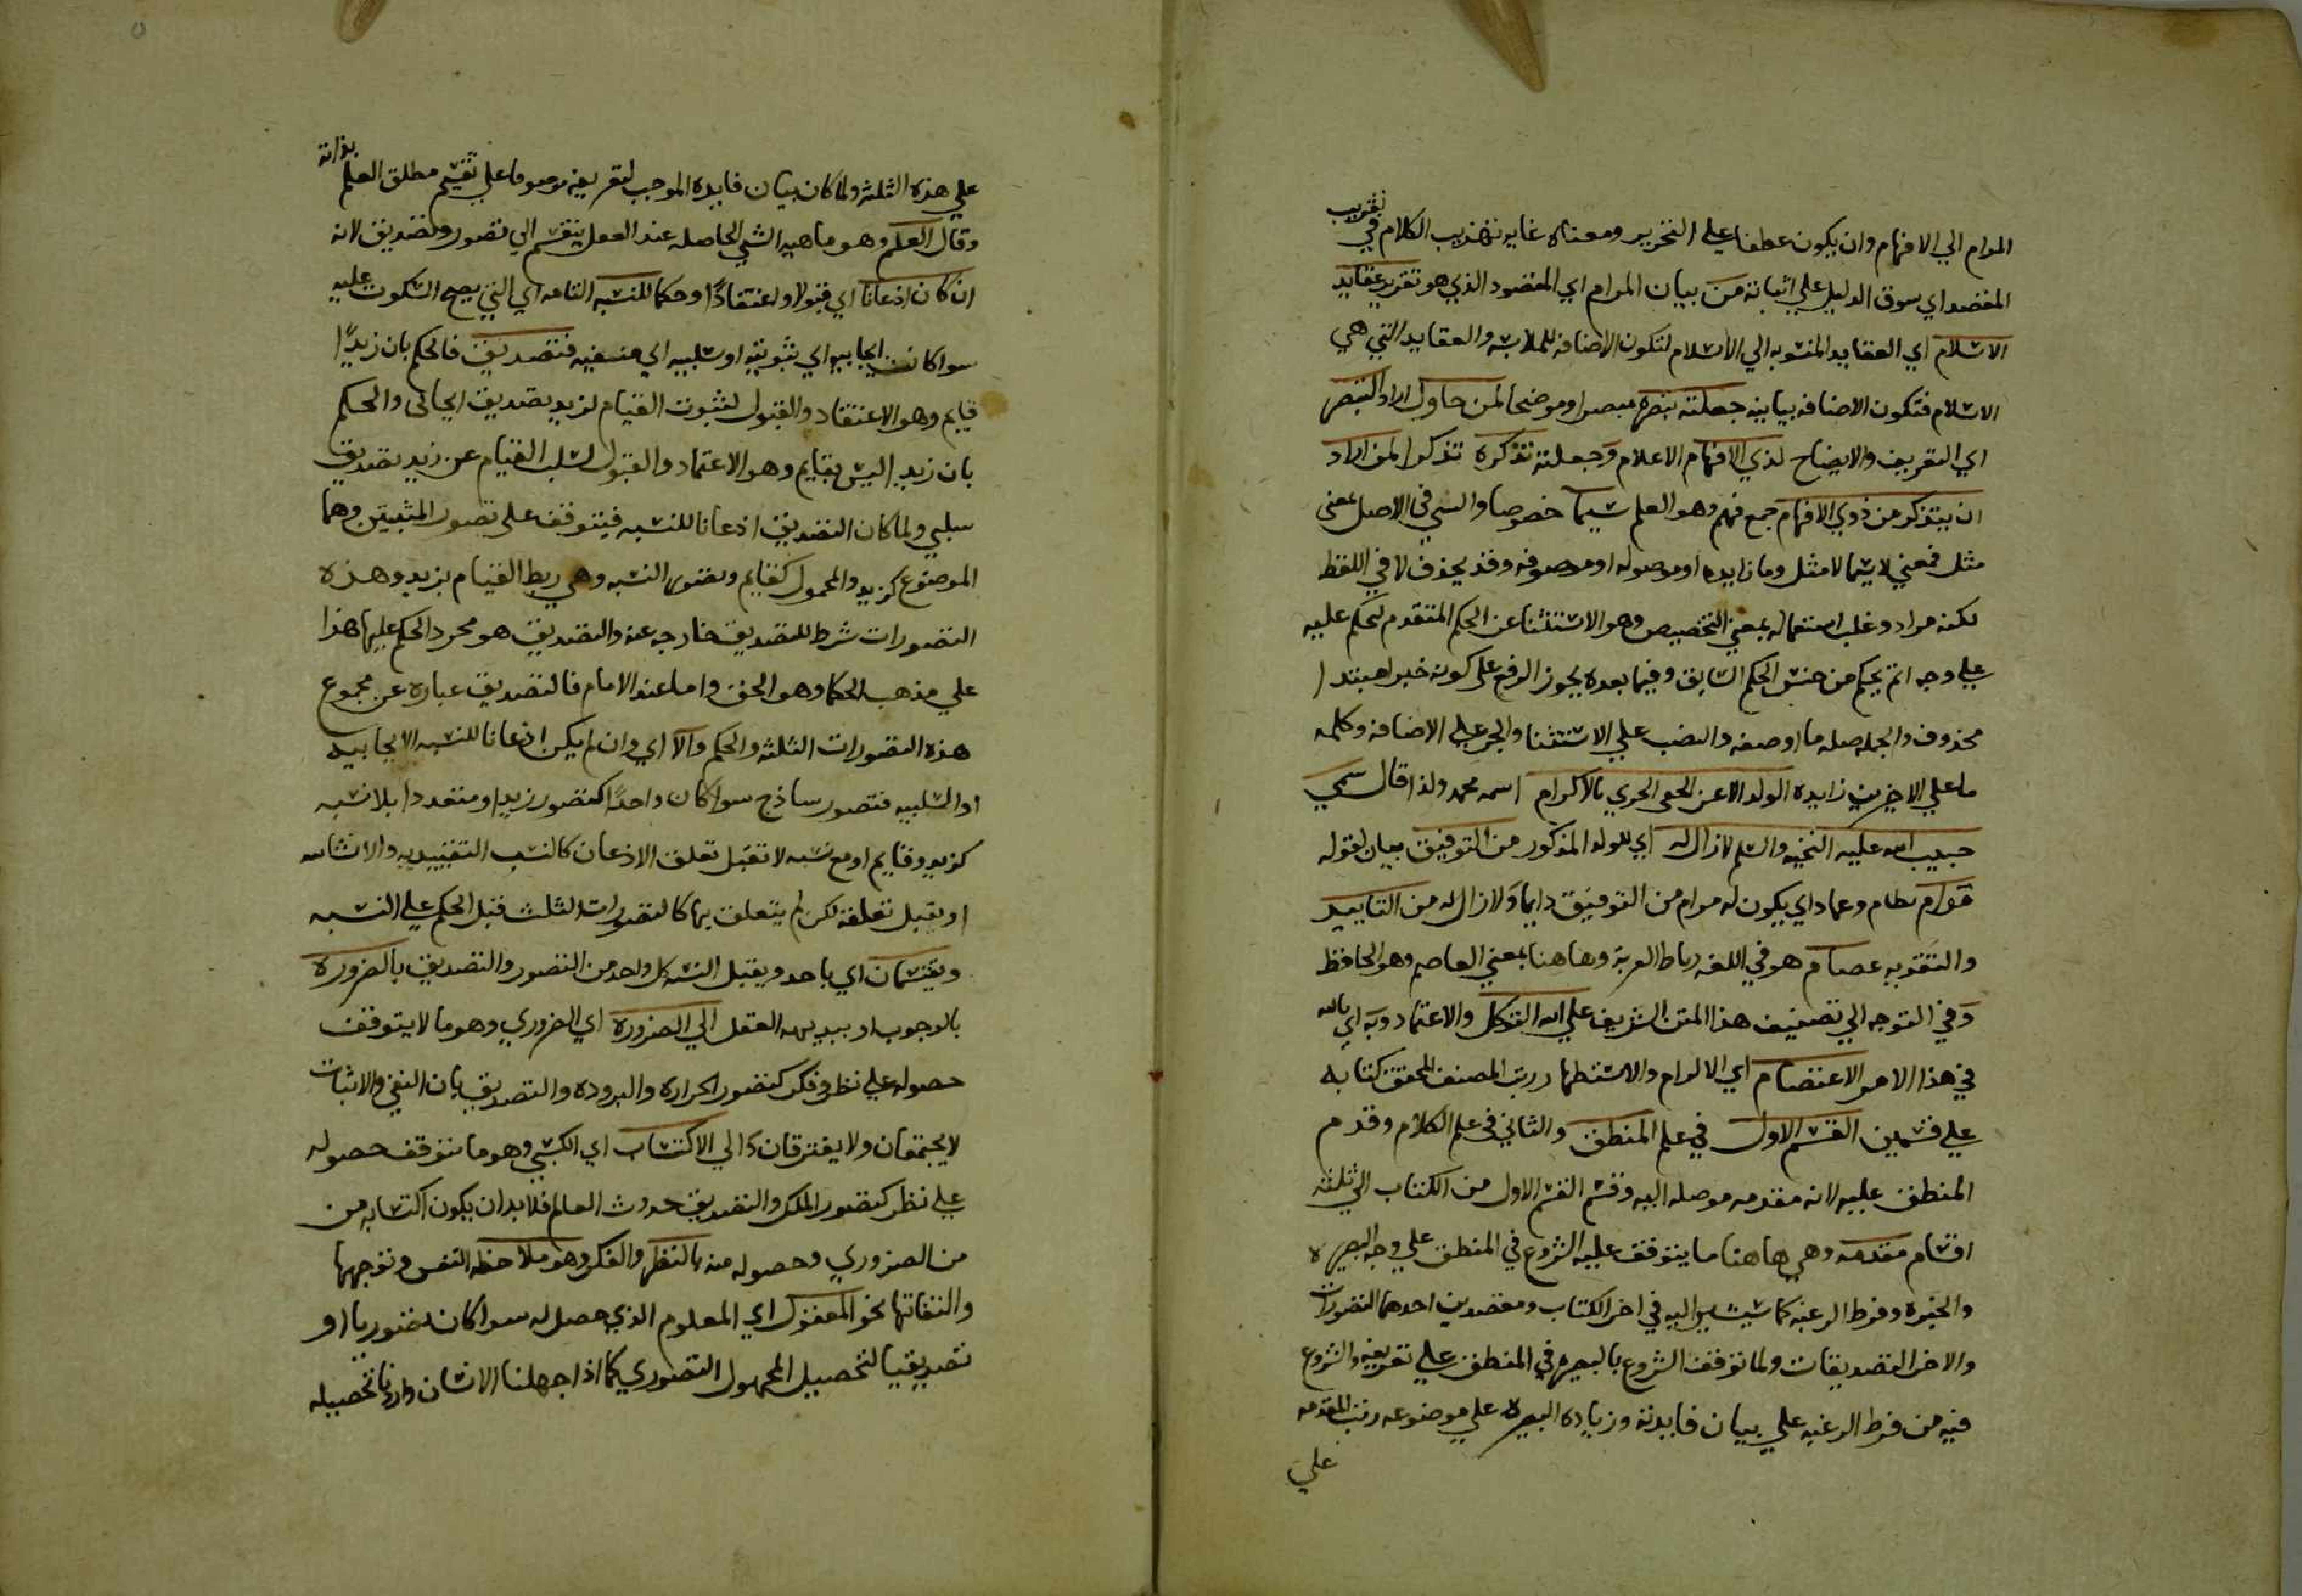 المرام الي الافهام وان يكون عطفا علي التحرير ومعناه غايه تهذيب الكلام في تقريب
المقصد اي سوق الدليل علي اثباته من بيان المرام اي المقصود الذي هو تقرير عقايد
الاسلام اي العقايد المنسوبه الي الاسلام لتكون الاضافه للملابسه والعقايد التي هي
الاسلام فتكون الاضافه بيانيه جعلته تبصره مبصرا وموضحا لمن حاول اراد التبصر
اي التعريف والايضاح لذي الافهام الاعلام وجعلته تذكرة تذكرا لمن اراد
ان يتذكر من ذوي الافهام جمع فهم وهو العلم سيما خصوصا والسي في الاصل بمعني
مثل فمعني لاسيما لا مثل وما زايده او موصوله او موصوفه وقد يحذف لا في اللفظ
لكنه مراد وغلب استعماله بمعني التخصيص وهو الاستثنا عن الحكم المتقدم ليحكم عليه
علي وجه اتم بحكم من جنس الحكم السابق وفيما بعده يجوز الرفع علي كونه خبر لمبتدا
محذوف والجمله صله ما او صفه والنصب علي الاستثنا والجر علي الاضافه وكلمه
ما علي الاخيرين زايده الولد الاعز الحفي الحري بالاكرام اسمه محمد ولذا قال سمي
حبيب الله عليه التحيه والسلم لازال له اي للولد المذكور من التوفيق بيان لقوله
قوام نظام وعماد اي يكون له مرام من التوفيق دايما ولازال له من التاييد
والتقويه عصام هو في اللغه رباط القربة وهاهنا بمعني العاصم وهو الحافظ
وفي التوجه الي تصنيف هذا المتن الشريف علي الله التوكل والاعتماد وبه اي بالله
في هذا الامر الاعتصام اي الالزام والاستظهار رتب المصنف المحقق كتابه
علي قسمين القسم الاول في علم المنطق والثاني في علم الكلام وقدم
المنطق عليه لانه مقدمه موصله اليه وقسم القسم الاول من الكتاب الي ثلثة
اقسام مقدمه وهي هاهنا ما يتوقف عليه الشروع في المنطق علي وجه البصيره
والخبرة وفرط الرغبه كما سيشير اليه في اخر الكتاب ومقصدين احدهما التصورات
والاخر التصديقات ولما توقف الشروع بالبصيره في المنطق علي تعريفه والشروع
فيه من فرط الرغبه علي بيان فايدته وزياده البصيره علي موضوعه رتب المقدمه
علي
علي هذه الثلثه ولما كان بيان فايده الموجب لتعريفه موصوفا علي تقسيم مطلق العلم بذاته
وقال العلم وهو ماهيه الشي الحاصله عند العقل ينقسم الي تصور وتصديق لانه
ان كان اذعانا اي قبولا واعتقادا وحكما للنسبه التامه اي التي يصح السكوت عليه
سوا كانت ايجابيه اي ثبوتيه او سلبيه اي منفيه فتصديق فالحكم بان زيدا
قايم وهو الاعتقاد والقبول لثبوت القيام لزيد تصديق ايجابي والحكم
بان زيد اليس بقايم وهو الاعتماد والقبول لسلب القيام عن زيد تصديق
سلبي ولما كان التصديق اذعانا للنسبه فيتوقف علي تصور المثبتين وهما
الموضوع كزيد والمحمول كقايم وتصور النسبه وهي ربط القيام بزيد وهذه
التصورات شرط للتصديق خارجه عنه والتصديق هو مجرد الحكم عليها هذا
علي مذهب الحكما وهو الحق واما عند الامام فالتصديق عباره عن مجموع
هذه التصورات الثلثه والحكم والا اي وان لم يكن اذعانا للنسبه الايجابيه
او السلبيه فتصور ساذج سوا كان واحدا كتصور زيد او متعددا بلا نسبه
كزيد وقايم او مع نسبه لا تقبل تعلق الاذعان كالنسب التقييديه والانشائيه
او يقبل تعلقه لكن لم يتعلق بها كالتصورات الثلث قبل الحكم علي النسبه
ويقتسمان اي ياخذ ويقبل القسمه كل واحد من التصور والتصديق بالضرورة
بالوجوب او ببديهه العقل الي الضرورة اي الضروري وهو ما لا يتوقف
حصوله علي نظر وفكر كتصور الحراره والبروده والتصديق بان النفي والاثبات
لا يجتمعان ولا يفترقان والي الاكتساب اي الكسبي وهو ما يتوقف حصوله
علي نظر كتصور الملك والتصديق بحدوث العالم فلابد ان يكون اكتسابه من
من الضروري وحصوله منه بالنظر والفكر وهو ملاحظه النفس وتوجهها
والتفاتها نحو المعقول اي المعلوم الذي حصل له سوا كان تصوريا او
تصديقيا لتحصيل المجهول التصوري كما اذا جهلنا الانسان واردنا تحصيله